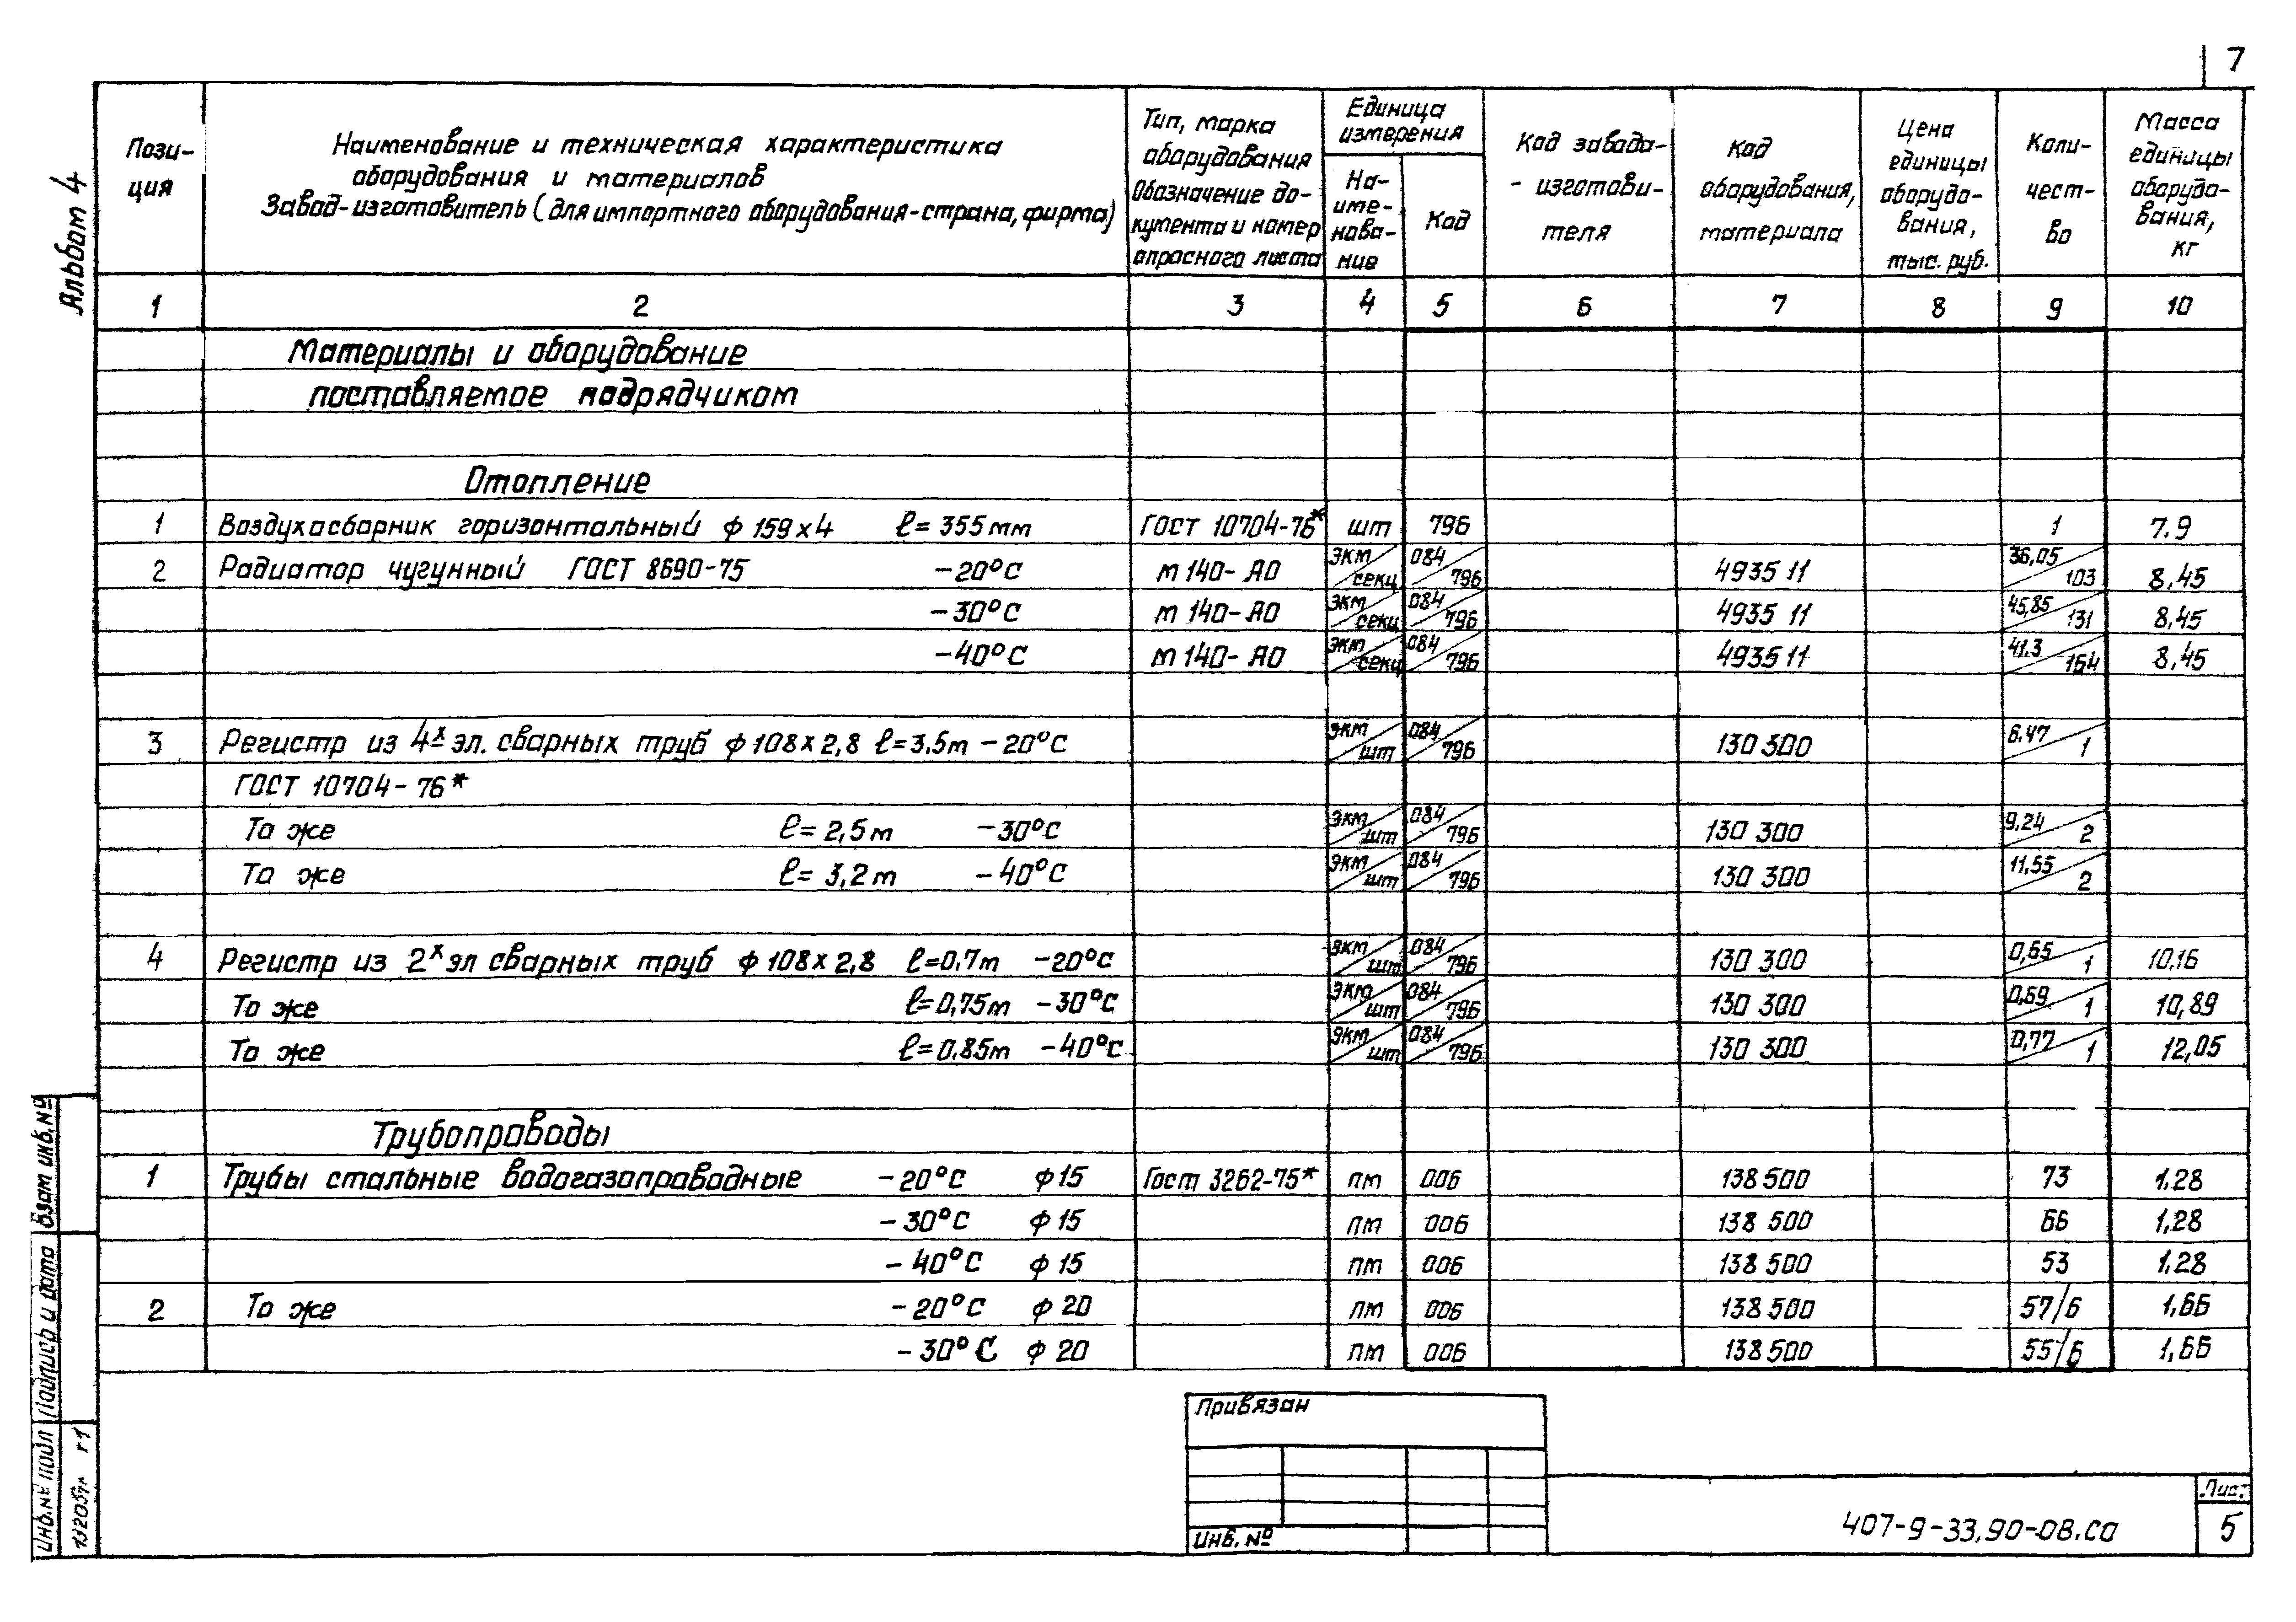 7
Альбом 4
Пози-
ция
Наименование и техническая характеристика
оборудования и материалов
Завод-изготовитель (для импортного оборудования-страна, фирма)
Тип, марка
оборудования
Обозначение до-
кумента и номер
опросного листа
Единица
измерения
На-
име-
нова-
ние
Код
Код завода-
- изготови-
теля
Код
оборудования,
материала
Цена
единицы
оборудо-
вания,
тыс. руб.
Коли-
чест-
во
Масса
единицы
оборудо-
вания,
кг
1 2 3 4 5 6 7 8 9 10
Материалы и оборудование
поставляемое подрядчиком
Отопление
1 Воздухосборник горизонтальный ф 159х4 ℓ= 355мм ГОСТ 10704-76* шт 796 1 7.9
2 Радиатор чугунный ГОСТ 8690-75 -20°С м 140-АО экм/секц 084/796 4935 11 36,05/103 8,45
-30°С м 140-АО экм/секц 084/796 4935 11 45,85/131 8,45
-40°С м 140-АО экм/секц 084/796 4935 11 41.3/164 8,45
3 Регистр из 4х эл. сварных труб ф 108х2,8 ℓ=3.5м -20°С экм/шт 084/796 130 300 6.47/1
ГОСТ 10704-76*
То же ℓ= 2,5м -30°С экм/шт 084/796 130 300 9.24/2
То же ℓ= 3,2м -40°С экм/шт 084/796 130 300 11,55/2
4 Регистр из 2х эл сварных труб ф 108х2,8 ℓ=0,7м -20°С экм/шт 084/796 130 300 0,65/1 10,16
То же ℓ=0,75м -30°С экм/шт 084/796 130 300 0,69/1 10,89
То же ℓ=0.85м -40°С экм/шт 084/796 130 300 0,77/1 12,05
Трубопроводы
1 Трубы стальные водогазопроводные -20°С ф15 Гост 3262-75* пм 006 138 500 73 1.28
-30°С ф15 пм 006 138 500 66 1,28
-40°С ф15 пм 006 138 500 53 1.28
2 То же -20°С ф20 пм 006 138 500 57/6 1,66
-30°С ф20 пм 006 138 500 55/6 1,66
Привязан
Инв. №
407-9-33.90-08.СО
Лист
5
Взам инв.№
Подпись и дата
Инв.№ подл